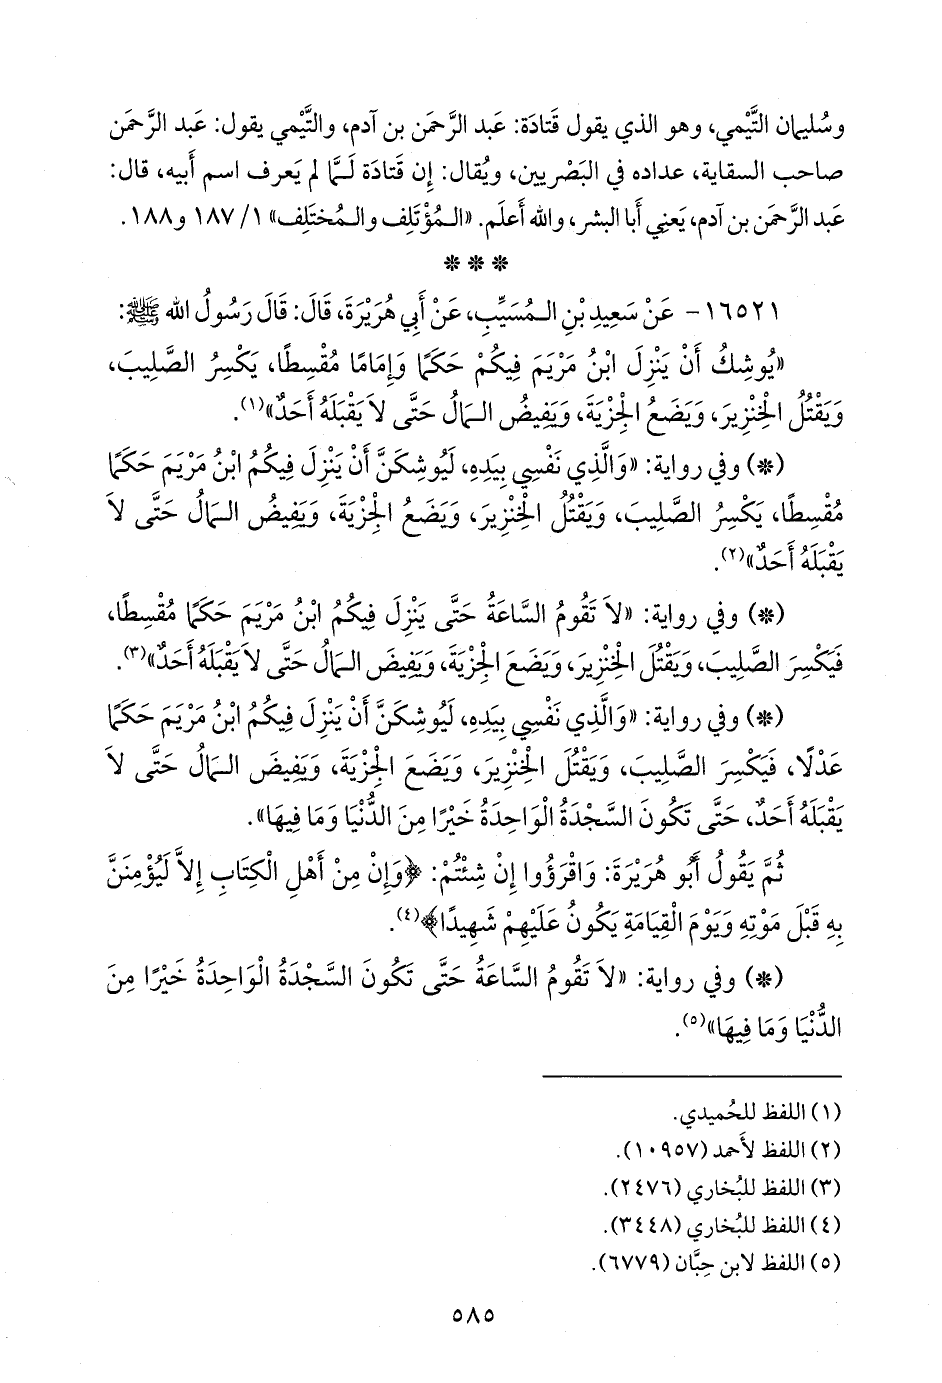 وسُليمان التَّيْمي، وهو الذي يقول قَتادَة: عَبد الرَّحمَن بن آدم، والتَّيْمي يقول: عَبد الرَّحمَن
صاحب السقاية، عداده في البَصْريين، ويُقال: إن قَتادَة لَمَّا لم يَعرف اسم أَبيه، قال:
عَبد الرَّحمَن بن آدم، يَعنِي أَبا البشر، والله أَعلَم. «المُؤْتَلِف والمُختَلِف» ١/ ١٨٧ و١٨٨.
* * *
١٦٥٢١- عَنْ سَعِيدِ بْنِ المُسَيِّبِ، عَنْ أَبِي هُرَيْرَةَ، قَالَ: قَالَ رَسُولُ الله ﷺ:
«يُوشِكُ أَنْ يَنْزِلَ ابْنُ مَرْيَمَ فِيكُمْ حَكَمًا وَإِمَامًا مُقْسِطًا، يَكْسِرُ الصَّلِيبَ،
وَيَقْتُلُ الْخِنْزِيرَ، وَيَضَعُ الْجِزْيَةَ، وَيَفِيضُ المَالُ حَتَّى لاَ يَقْبَلَهُ أَحَدٌ»(١).
(*) وفي رواية: «وَالَّذِي نَفْسِي بِيَدِهِ، لَيُوشِكَنَّ أَنْ يَنْزِلَ فِيكُمُ ابْنُ مَرْيَمَ حَكَمًا
مُقْسِطًا، يَكْسِرُ الصَّلِيبَ، وَيَقْتُلُ الْخِنْزِيرَ، وَيَضَعُ الْجِزْيَةَ، وَيَفِيضُ المَالُ حَتَّى لاَ
يَقْبَلَهُ أَحَدٌ»(٢).
(*) وفي رواية: «لاَ تَقُومُ السَّاعَةُ حَتَّى يَنْزِلَ فِيكُمُ ابْنُ مَرْيَمَ حَكَمًا مُقْسِطًا،
فَيَكْسِرَ الصَّلِيبَ، وَيَقْتُلَ الْخِنْزِيرَ، وَيَضَعَ الْجِزْيَةَ، وَيَفِيضَ المَالُ حَتَّى لاَ يَقْبَلَهُ أَحَدٌ»(٣).
(*) وفي رواية: «وَالَّذِي نَفْسِي بِيَدِهِ، لَيُوشِكَنَّ أَنْ يَنْزِلَ فِيكُمُ ابْنُ مَرْيَمَ حَكَمًا
عَدْلًا، فَيَكْسِرَ الصَّلِيبَ، وَيَقْتُلَ الْخِنْزِيرَ، وَيَضَعَ الْجِزْيَةَ، وَيَفِيضَ المَالُ حَتَّى لاَ
يَقْبَلَهُ أَحَدٌ، حَتَّى تَكُونَ السَّجْدَةُ الْوَاحِدَةُ خَيْرًا مِنَ الدُّنْيَا وَمَا فِيهَا».
ثُمَّ يَقُولُ أَبُو هُرَيْرَةَ: وَاقْرَؤُوا إِنْ شِئْتُمْ: ﴿وَإِنْ مِنْ أَهْلِ الْكِتَابِ إِلاَّ لَيُؤْمِنَنَّ
بِهِ قَبْلَ مَوْتِهِ وَيَوْمَ الْقِيَامَةِ يَكُونُ عَلَيْهِمْ شَهِيدًا﴾(٤).
(*) وفي رواية: «لاَ تَقُومُ السَّاعَةُ حَتَّى تَكُونَ السَّجْدَةُ الْوَاحِدَةُ خَيْرًا مِنَ
الدُّنْيَا وَمَا فِيهَا»(٥).
(١) اللفظ للحُميدي.
(٢) اللفظ لأَحمد (١٠٩٥٧).
(٣) اللفظ للبُخاري (٢٤٧٦).
(٤) اللفظ للبُخاري (٣٤٤٨).
(٥) اللفظ لابن حِبَّان (٦٧٧٩).
٥٨٥